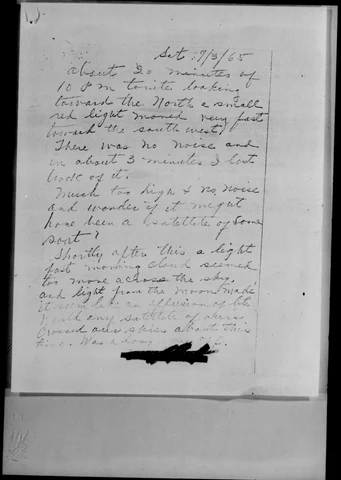 Sat. 7/3/65
About 20 minutes of
10 P m tonite looking
toward the North a small
red light moved very fast
toward the south west.
There was no noise and
in about 3 minutes I lost
track of it.
Much too high & No Noise
and wonder if it might
have been a satellite of some
sort?
Shortly after this a light
fast moving cloud seemed
to move across the sky
and light from the moon made
it seem like an illusion of
any satellite of
crossed our skies about this
time. Was a long